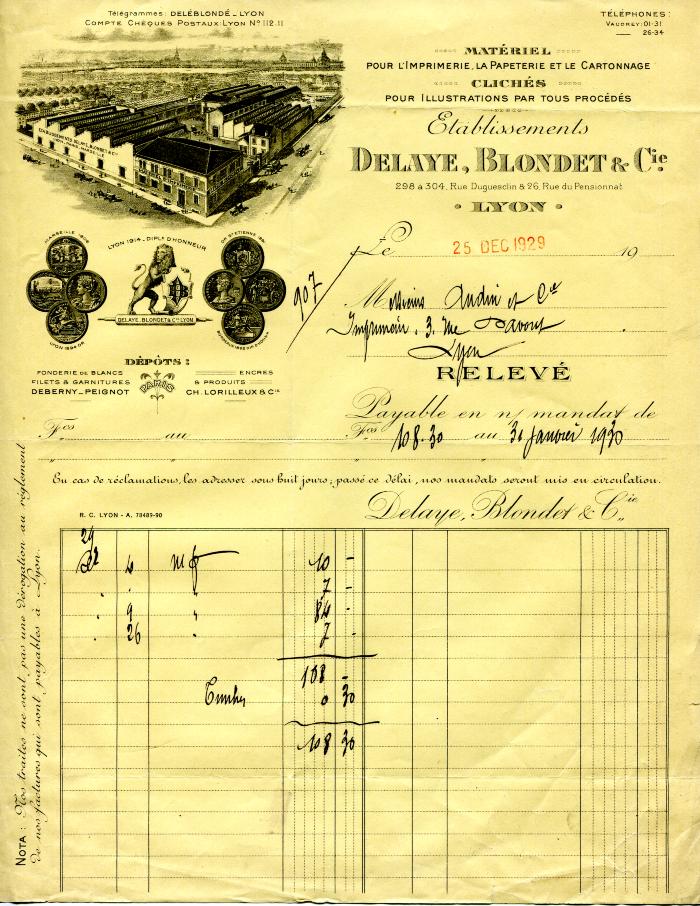 Télégrammes: DELÉBLONDÉ_LYON
COMPTE CHÈQUES POSTAUX: LYON N° 112.11
TÉLÉPHONES:
VAUDREY: 01-31
26-34
MATÉRIEL
POUR L'IMPRIMERIE, LA PAPETERIE ET LE CARTONNAGE
CLICHÉS
POUR ILLUSTRATIONS PAR TOUS PROCÉDÉS
Etablissements
DELAYE, BLONDET & Cie
298 à 304, Rue Duguesclin & 26, Rue du Pensionnat
LYON
Le 25 DEC 1929 19
MARSEILLE 1906
LYON 1914 - DIPLE D'HONNEUR
LYON 1894 OR
DELAYE. BLONDET & Cie LYON
907
Messieurs Audin et Cie
Imprimeurs. 3, rue Davout
Lyon
RELEVÉ
DÉPÔTS:
FONDERIE DE BLANCS
FILETS & GARNITURES
DEBERNY_PEIGNOT
PARIS
ENCRES
& PRODUITS
CH. LORILLEUX & Cie
Payable en n/ mandat de
Fcs au
Fcs 108.30 au 31 Janvier 1930
En cas de réclamations, les adresser sous huit jours; passé ce délai, nos mandats seront mis en circulation.
R. C. LYON - A. 78489-90
Delaye, Blondet & Cie
29
4 10 -
7 -
9 84 -
26 7 -
108 -
Timbre 0 30
108 30
NOTA: Nos traites ne sont pas une dérogation au règlement
de nos factures qui sont payables à Lyon.